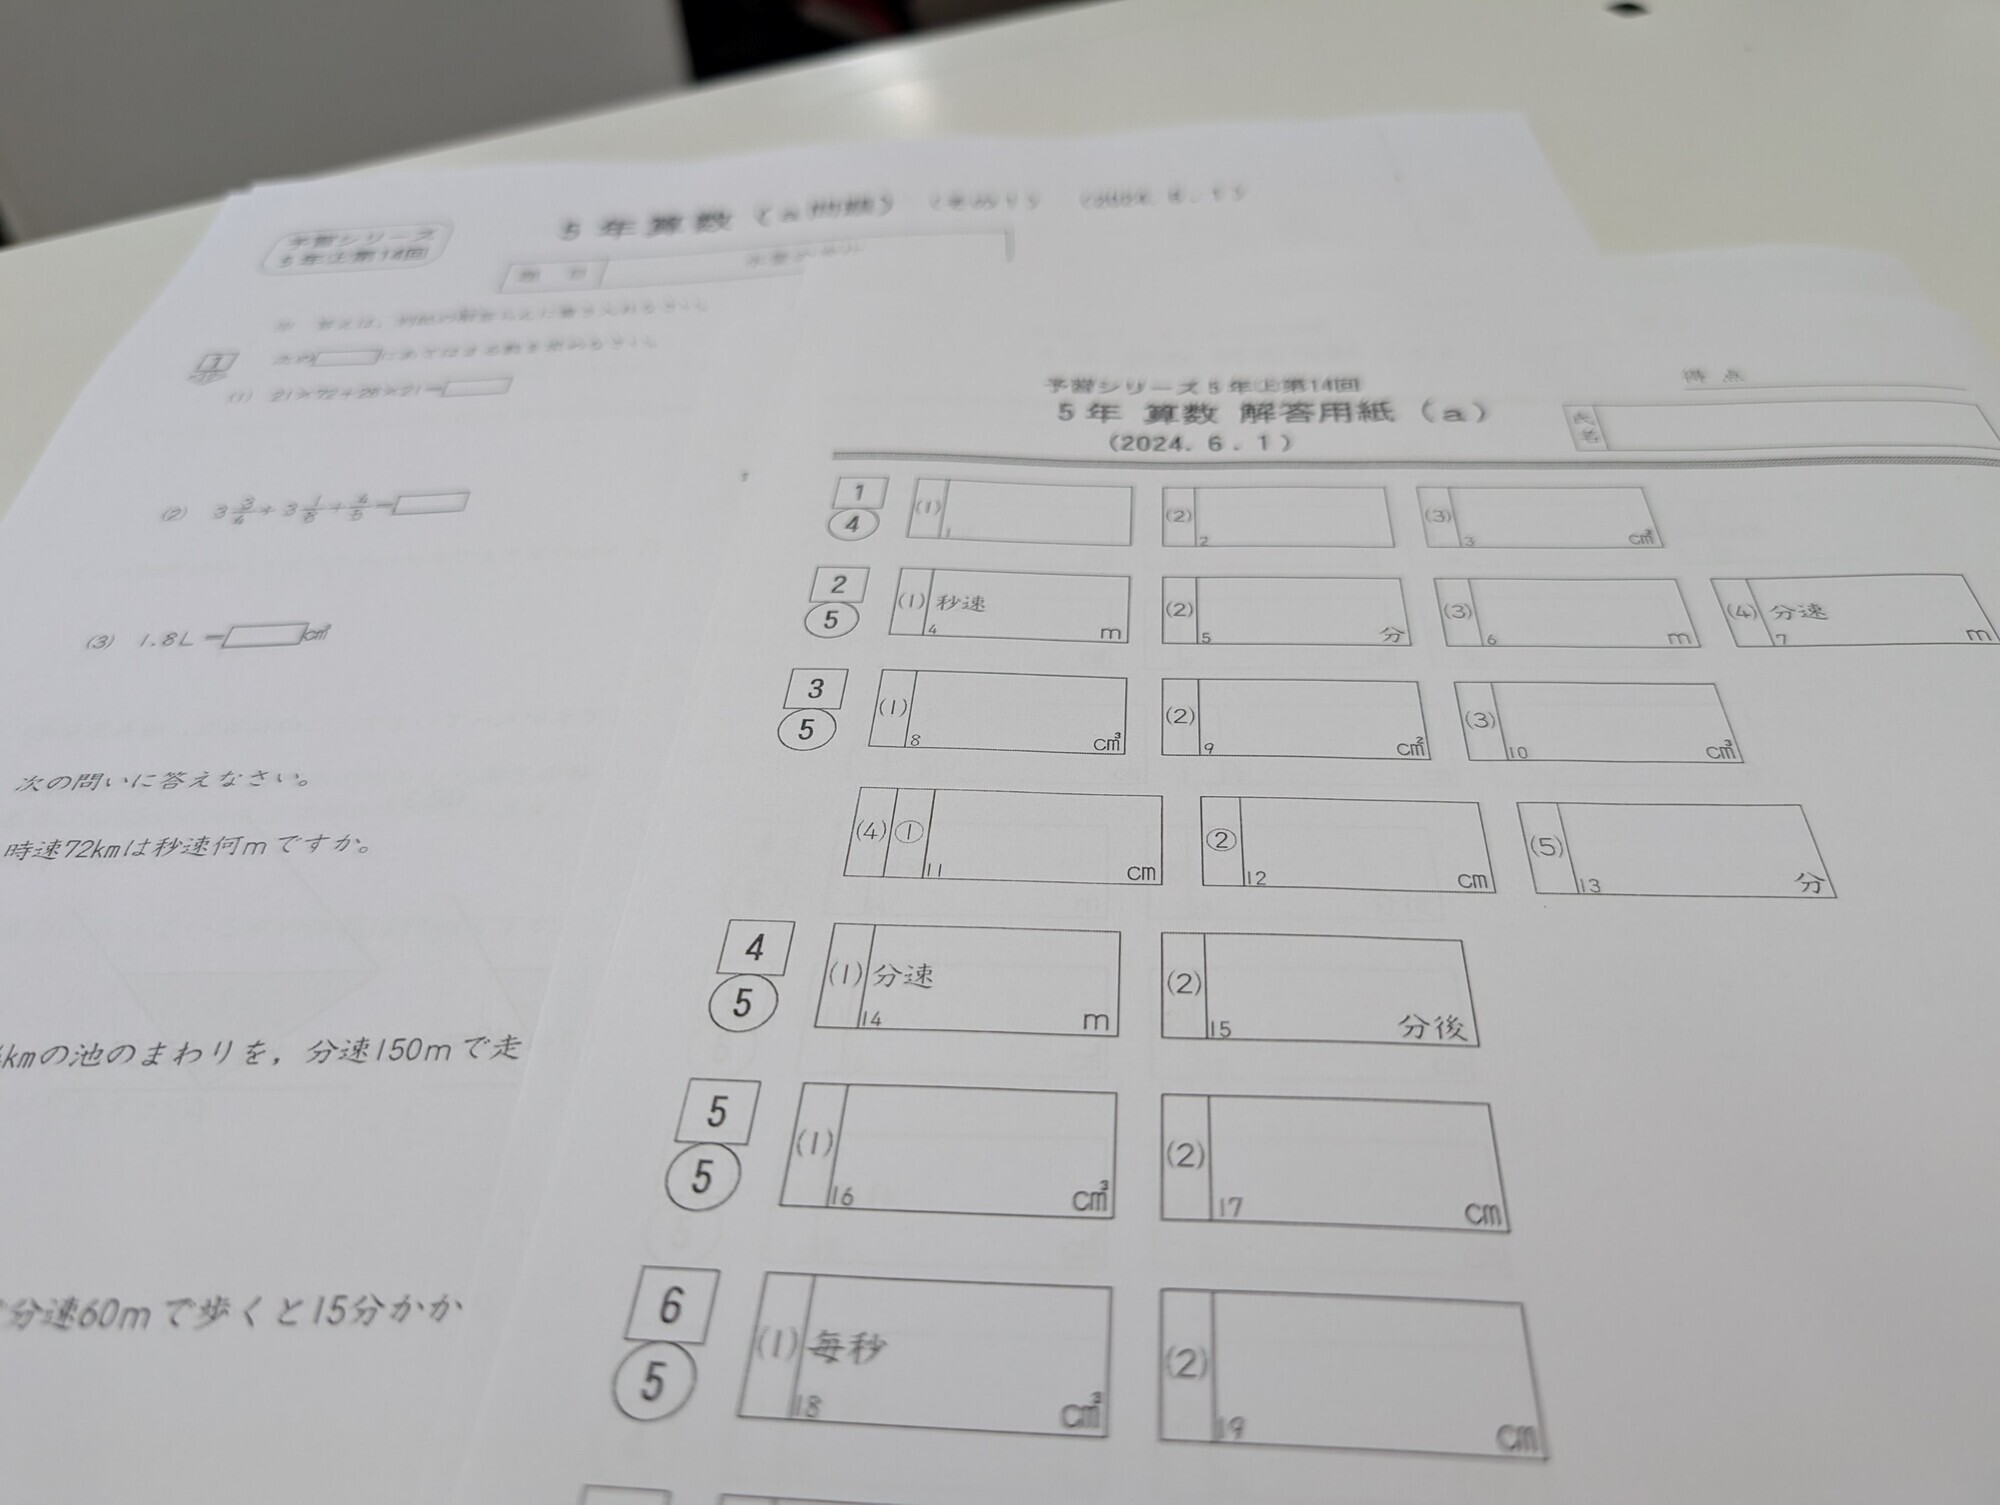 予習シリーズ
5年上第14回
5年算数（a問題）
次の□にあてはまる数を求めなさい。
1
(1) 21×72+28×21=
(2) 3 3/4+3 1/8+4/5=
(3) 1.8L=□cm³
次の問いに答えなさい。
時速72kmは秒速何mですか。
kmの池のまわりを，分速150mで走
分速60mで歩くと15分かか
予習シリーズ5年上第14回
得点
5年 算数 解答用紙（a）
氏名
（2024．6．1）
1 4 (1) 1 (2) 2 (3) 3 cm³
2 5 (1) 秒速 4 m (2) 5 分 (3) 6 m (4) 分速 7 m
3 5 (1) 8 cm³ (2) 9 cm² (3) 10 cm³
(4) ① 11 cm ② 12 cm (5) 13 分
4 5 (1) 分速 14 m (2) 15 分後
5 5 (1) 16 cm³ (2) 17 cm
6 5 (1) 毎秒 18 cm³ (2) 19 cm